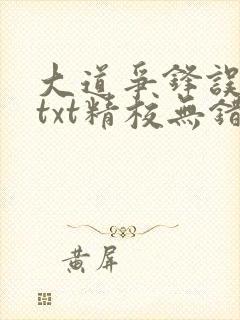 大道爭鋒誤
txt精校無錯
黃屏